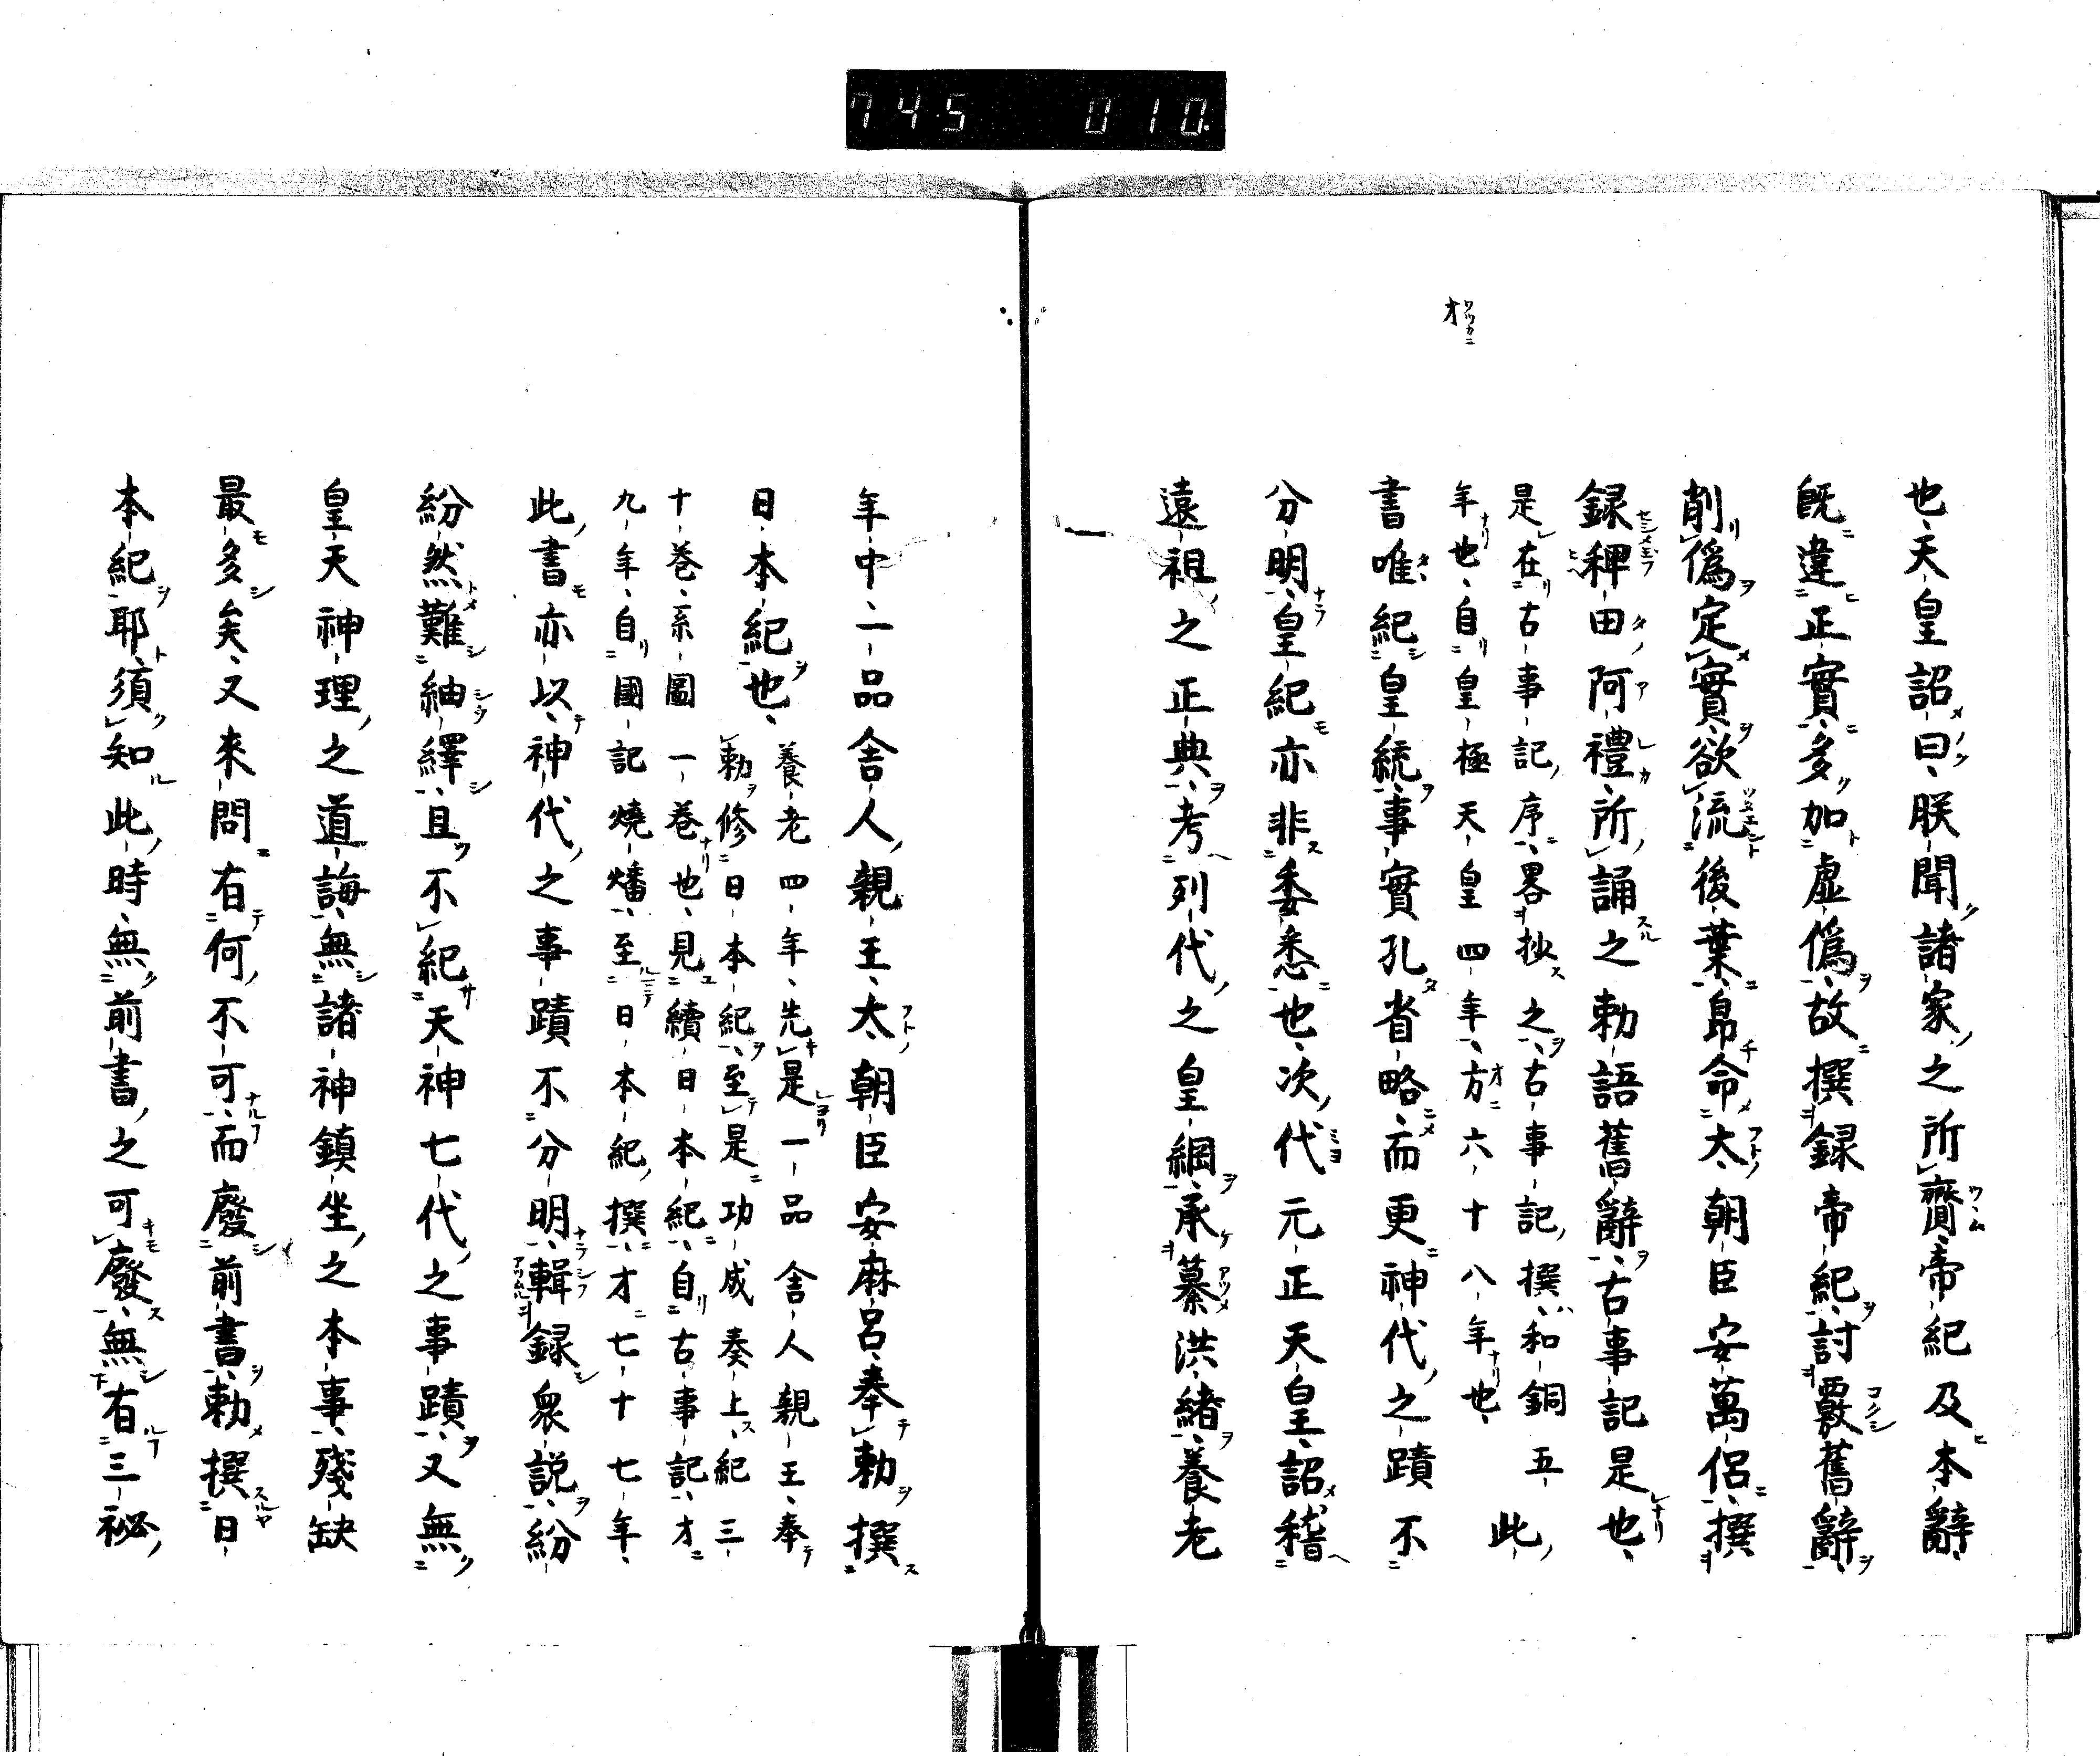 745 010.
也天皇詔曰朕聞諸家之所賷帝紀及本辭
既違正實多加虛偽故撰録帝紀討覈舊辭
削偽定實欲流後葉帛命太朝臣安萬侶撰
録稗田阿禮所誦之勅語舊辭古事記是也
是在古事記序畧抄之古事記撰和銅五
年也自皇極天皇四年方六十八年也
才
此
書唯紀皇統事實孔省略而更神代之蹟不
分明皇紀亦非委悉也次代元正天皇詔稽
遠祖之正典考列代之皇綱承纂洪緒養老
年中二品舎人親王太朝臣安麻呂奉勅撰
日本紀也
養老四年先是一品舎人親王奉
勅修日本紀至是功成奏上紀三
十巻系圖一巻也見續日本紀自古事記才
九年自國記燒燔至日本紀撰才七十七年
此書亦以神代之事蹟不分明輯録衆説紛
紛然難紬繹且不紀天神七代之事蹟又無
皇天神理之道誨無諸神鎮坐之本事殘缺
最多矣又來問有何不可而廢前書勅撰日
本紀耶須知此時無前書之可廢無有三祕